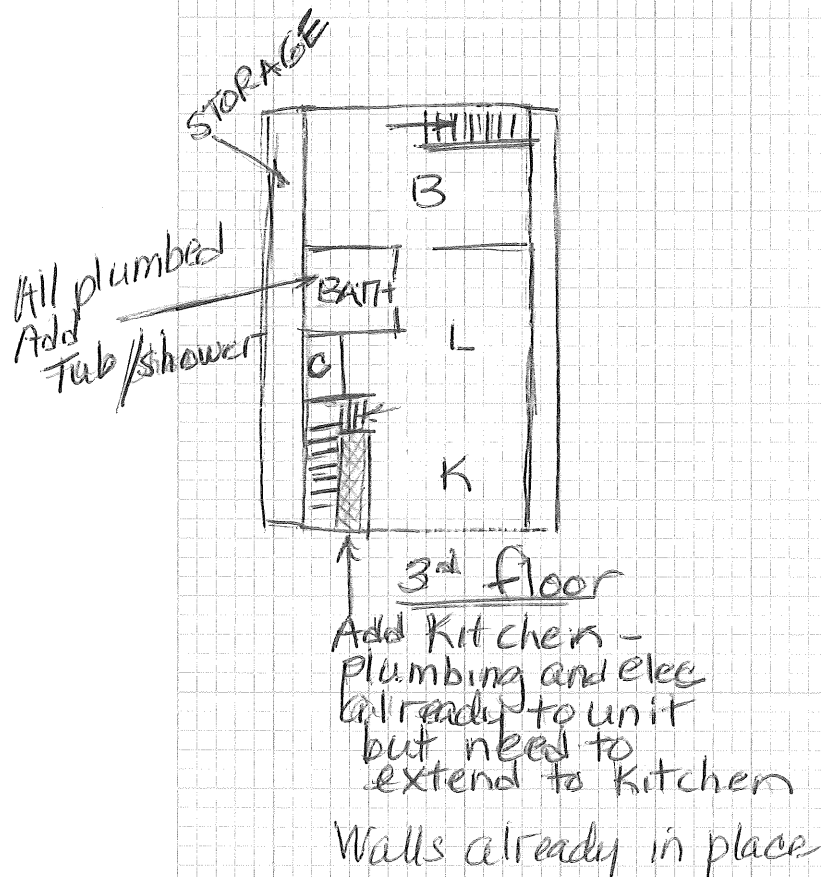 STORAGE
B
All plumbed
Add
Tub/shower
BATH
L
C
K
3rd floor
Add Kitchen -
plumbing and elec
already to unit
but need to
extend to Kitchen
Walls already in place